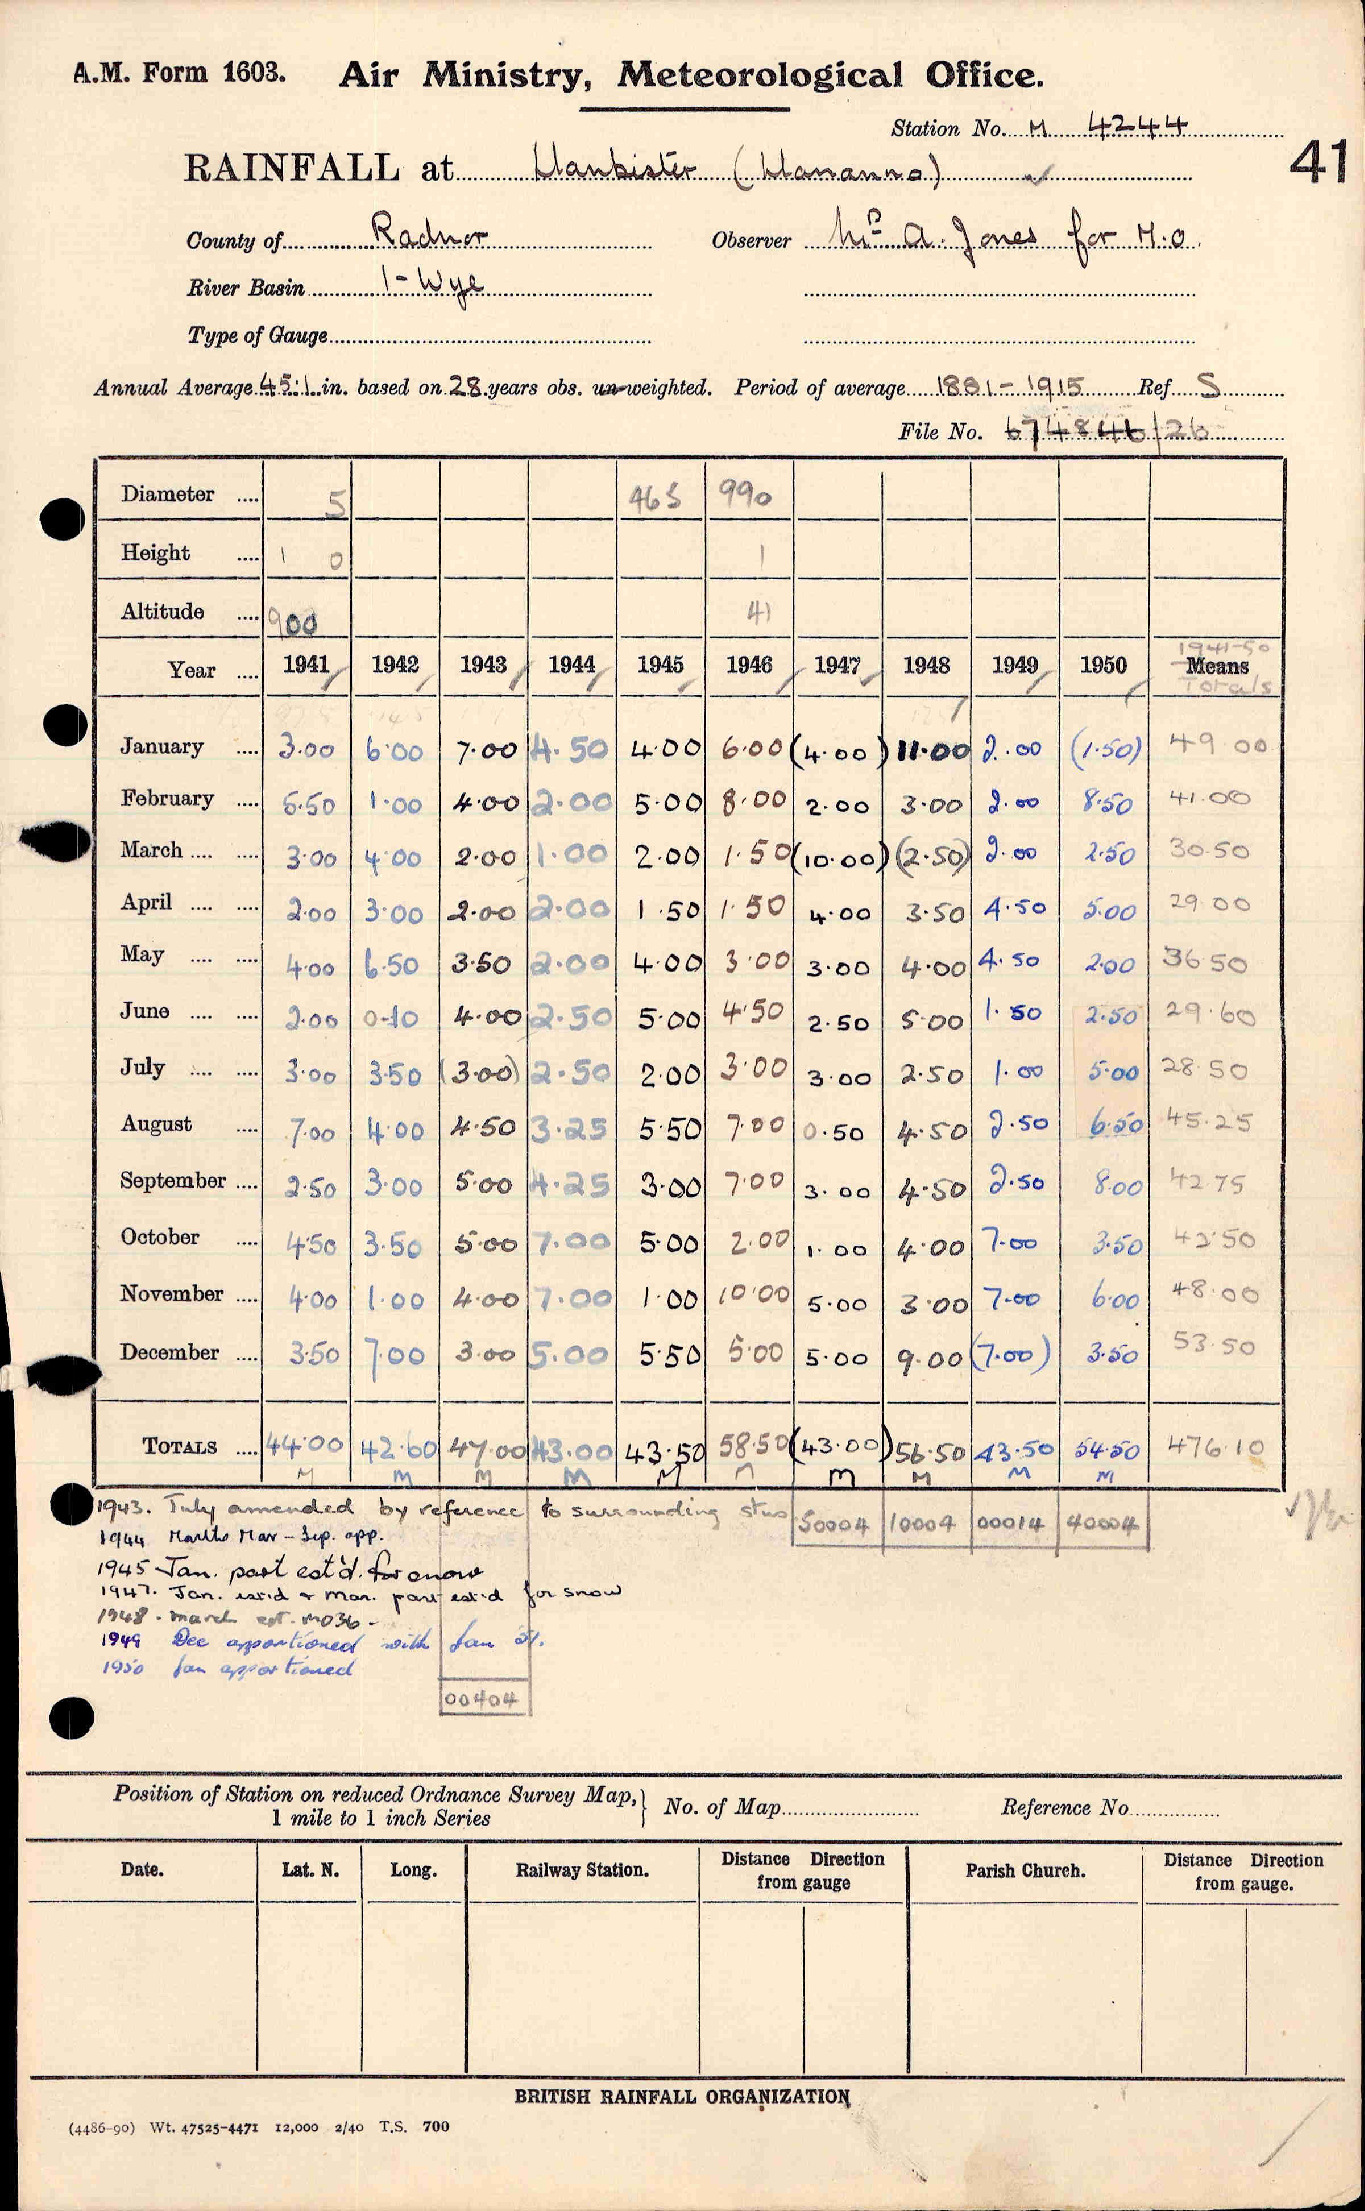 A.M. Form 1603. Air Ministry, Meteorological Office.
Station No. M 4244
41
RAINFALL at Llanbister (Llananno) ✓
County of Radnor Observer Mr A. Jones for M.O.
River Basin 1-Wye
Type of Gauge
Annual Average 45.1 in. based on 28 years obs. un-weighted. Period of average 1881-1915 Ref. S
File No. 674846/26
Diameter .... 5 465 990
Height .... 1 0 1
Altitude .... 900 41
1941-50
Year .... 1941 1942 1943 1944 1945 1946 1947 1948 1949 1950 Means
Totals
January .... 3.00 6.00 7.00 4.50 4.00 6.00 (4.00) 11.00 2.00 (1.50) 49.00
February .... 5.50 1.00 4.00 2.00 5.00 8.00 2.00 3.00 2.00 8.50 41.00
March .... .... 3.00 4.00 2.00 1.00 2.00 1.50 (10.00) (2.50) 2.00 2.50 30.50
April .... .... 2.00 3.00 2.00 2.00 1.50 1.50 4.00 3.50 4.50 5.00 29.00
May .... .... 4.00 6.50 3.50 2.00 4.00 3.00 3.00 4.00 4.50 2.00 36.50
June .... .... 2.00 0.10 4.00 2.50 5.00 4.50 2.50 5.00 1.50 2.50 29.60
July .... .... 3.00 3.50 (3.00) 2.50 2.00 3.00 3.00 2.50 1.00 5.00 28.50
August .... 7.00 4.00 4.50 3.25 5.50 7.00 0.50 4.50 2.50 6.50 45.25
September .... 2.50 3.00 5.00 4.25 3.00 7.00 3.00 4.50 2.50 8.00 42.75
October .... 4.50 3.50 5.00 7.00 5.00 2.00 1.00 4.00 7.00 3.50 42.50
November .... 4.00 1.00 4.00 7.00 1.00 10.00 5.00 3.00 7.00 6.00 48.00
December .... 3.50 7.00 3.00 5.00 5.50 5.00 5.00 9.00 (7.00) 3.50 53.50
TOTALS .... 44.00 42.60 47.00 43.00 43.50 58.50 (43.00) 56.50 43.50 54.50 476.10
M M M M M M M M M M
1943. July amended by reference to surrounding stns
50004 10004 00014 40004
1944 Mar - Sep. app.
1945 Jan. part est'd. for snow
1947. Jan. est'd + Mar. part est'd for snow
1948. March est. MO36
1949 Dec apportioned with Jan
1950 Jan apportioned
00404
Position of Station on reduced Ordnance Survey Map, 1 mile to 1 inch Series } No. of Map Reference No.
Date. Lat. N. Long. Railway Station. Distance Direction from gauge Parish Church. Distance Direction from gauge.
BRITISH RAINFALL ORGANIZATION
(4486-90) Wt. 47525-4471 12,000 2/40 T.S. 700